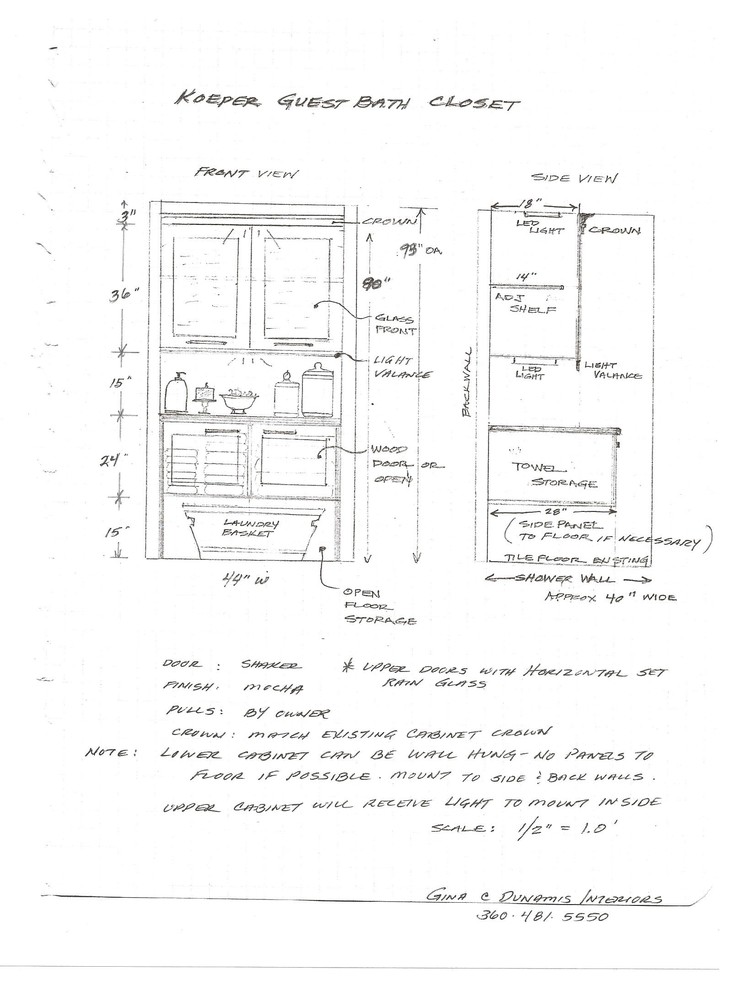 KOEPER GUEST BATH CLOSET
FRONT VIEW
SIDE VIEW
3"
36"
15"
24"
15"
CROWN
93" OA
90"
GLASS
FRONT
LIGHT
VALANCE
WOOD
DOOR OR
OPEN
LAUNDRY
BASKET
44" W
OPEN
FLOOR
STORAGE
18"
LED
LIGHT
CROWN
14"
ADJ
SHELF
BACKWALL
LED
LIGHT
LIGHT
VALANCE
TOWEL
STORAGE
28"
(SIDE PANEL
TO FLOOR IF NECESSARY)
TILE FLOOR EXISTING
SHOWER WALL
APPROX 40" WIDE
DOOR: SHAKER
* UPPER DOORS WITH HORIZONTAL SET
RAIN GLASS
FINISH: MOCHA
PULLS: BY OWNER
CROWN: MATCH EXISTING CABINET CROWN
NOTE: LOWER CABINET CAN BE WALL HUNG - NO PANELS TO
FLOOR IF POSSIBLE. MOUNT TO SIDE & BACK WALLS.
UPPER CABINET WILL RECEIVE LIGHT TO MOUNT INSIDE
SCALE: 1/2" = 1.0'
GINA C DUNAMIS INTERIORS
360.481.5550